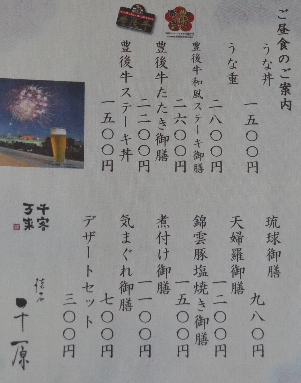 ご昼食のご案内
うな丼
一五〇〇円
うな重
二八〇〇円
豊後牛和風ステーキ御膳
二六〇〇円
豊後牛たたき御膳
二二〇〇円
豊後牛ステーキ丼
一五〇〇円
琉球御膳
九八〇円
天婦羅御膳
一二〇〇円
錦雲豚塩焼き御膳
一五〇〇円
煮付け御膳
一一〇〇円
気まぐれ御膳
七〇〇円
デザートセット
三〇〇円
千客
万来